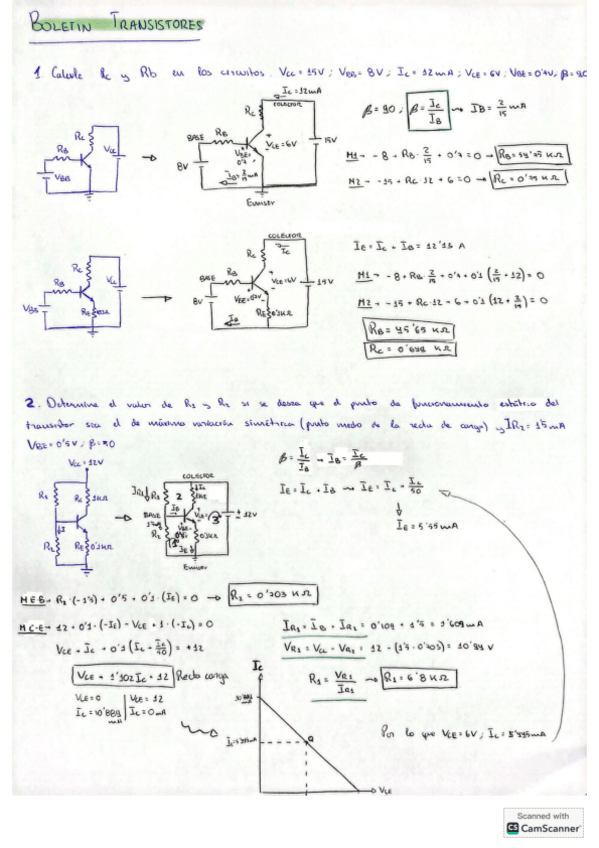 BOLETIN TRANSISTORES
1. Calcule Rc y Rb en los circuitos. Vcc = 15V ; VBB = 8V ; Ic = 12mA ; VCE = 6V ; VBE = 0'7V ; β = 90
Ic = 12mA
COLECTOR
Rc
RB
Vcc
VBB
BASE
RB
VCE = 6V
15V
8V
VBE = 0'7
IB = 2/15 mA
Emisor
β = 90 ; β = Ic/IB → IB = 2/15 mA
M1 → - 8 + RB · 2/15 + 0'7 = 0 → RB = 54'75 KΩ
M2 → - 15 + Rc · 12 + 6 = 0 → Rc = 0'75 KΩ
COLECTOR
Ic
Rc
RB
Vcc
VBB
BASE
RB
VCE = 6V
15V
8V
IB
IE = Ic + IB = 12'13 A
M1 → - 8 + RB · 2/15 + 0'7 + 0'1 (2/15 + 12) = 0
M2 → - 15 + Rc · 12 + 6 + 0'1 (12 + 2/15) = 0
RB = 45'65 KΩ
Rc = 0'648 KΩ
2. Determine el valor de R1 y R2 si se desea que el punto de funcionamiento estático del
transistor sea el de máxima variación simétrica (punto medio de la recta de carga) y IR2 = 15 mA
VBE = 0'5V ; β = 50
Vcc = 12V
R1
Rc
1KΩ
R2
RE
0'1KΩ
COLECTOR
IR1
R1
2
Ic
1KΩ
BASE
IB
3
12V
R2
0'1KΩ
IE
Emisor
β = Ic/IB → IB = Ic/β
IE = Ic + IB → IE = Ic + Ic/50
IE = 5'55 mA
M E-B → R2 · (-1'5) + 0'5 + 0'1 · (IE) = 0 → R2 = 0'703 KΩ
M C-E → 12 + 0'1 · (-IE) - VCE + 1 · (-Ic) = 0
VCE + Ic + 0'1 (Ic + Ic/50) = +12
VCE + 1'102 Ic = 12 Recta carga
VCE = 0 | VCE = 12
Ic = 10'889 mA | Ic = 0 mA
IR1 = IB + IR2 = 0'109 + 1'5 = 1'609 mA
VR1 = Vcc - VR2 = 12 - (1'5 · 0'703) = 10'94 V
R1 = VR1/IR1 → R1 = 6'8 KΩ
Ic
Q
VCE
Por lo que VCE = 6V ; Ic = 5'445 mA
Scanned with
CS CamScanner